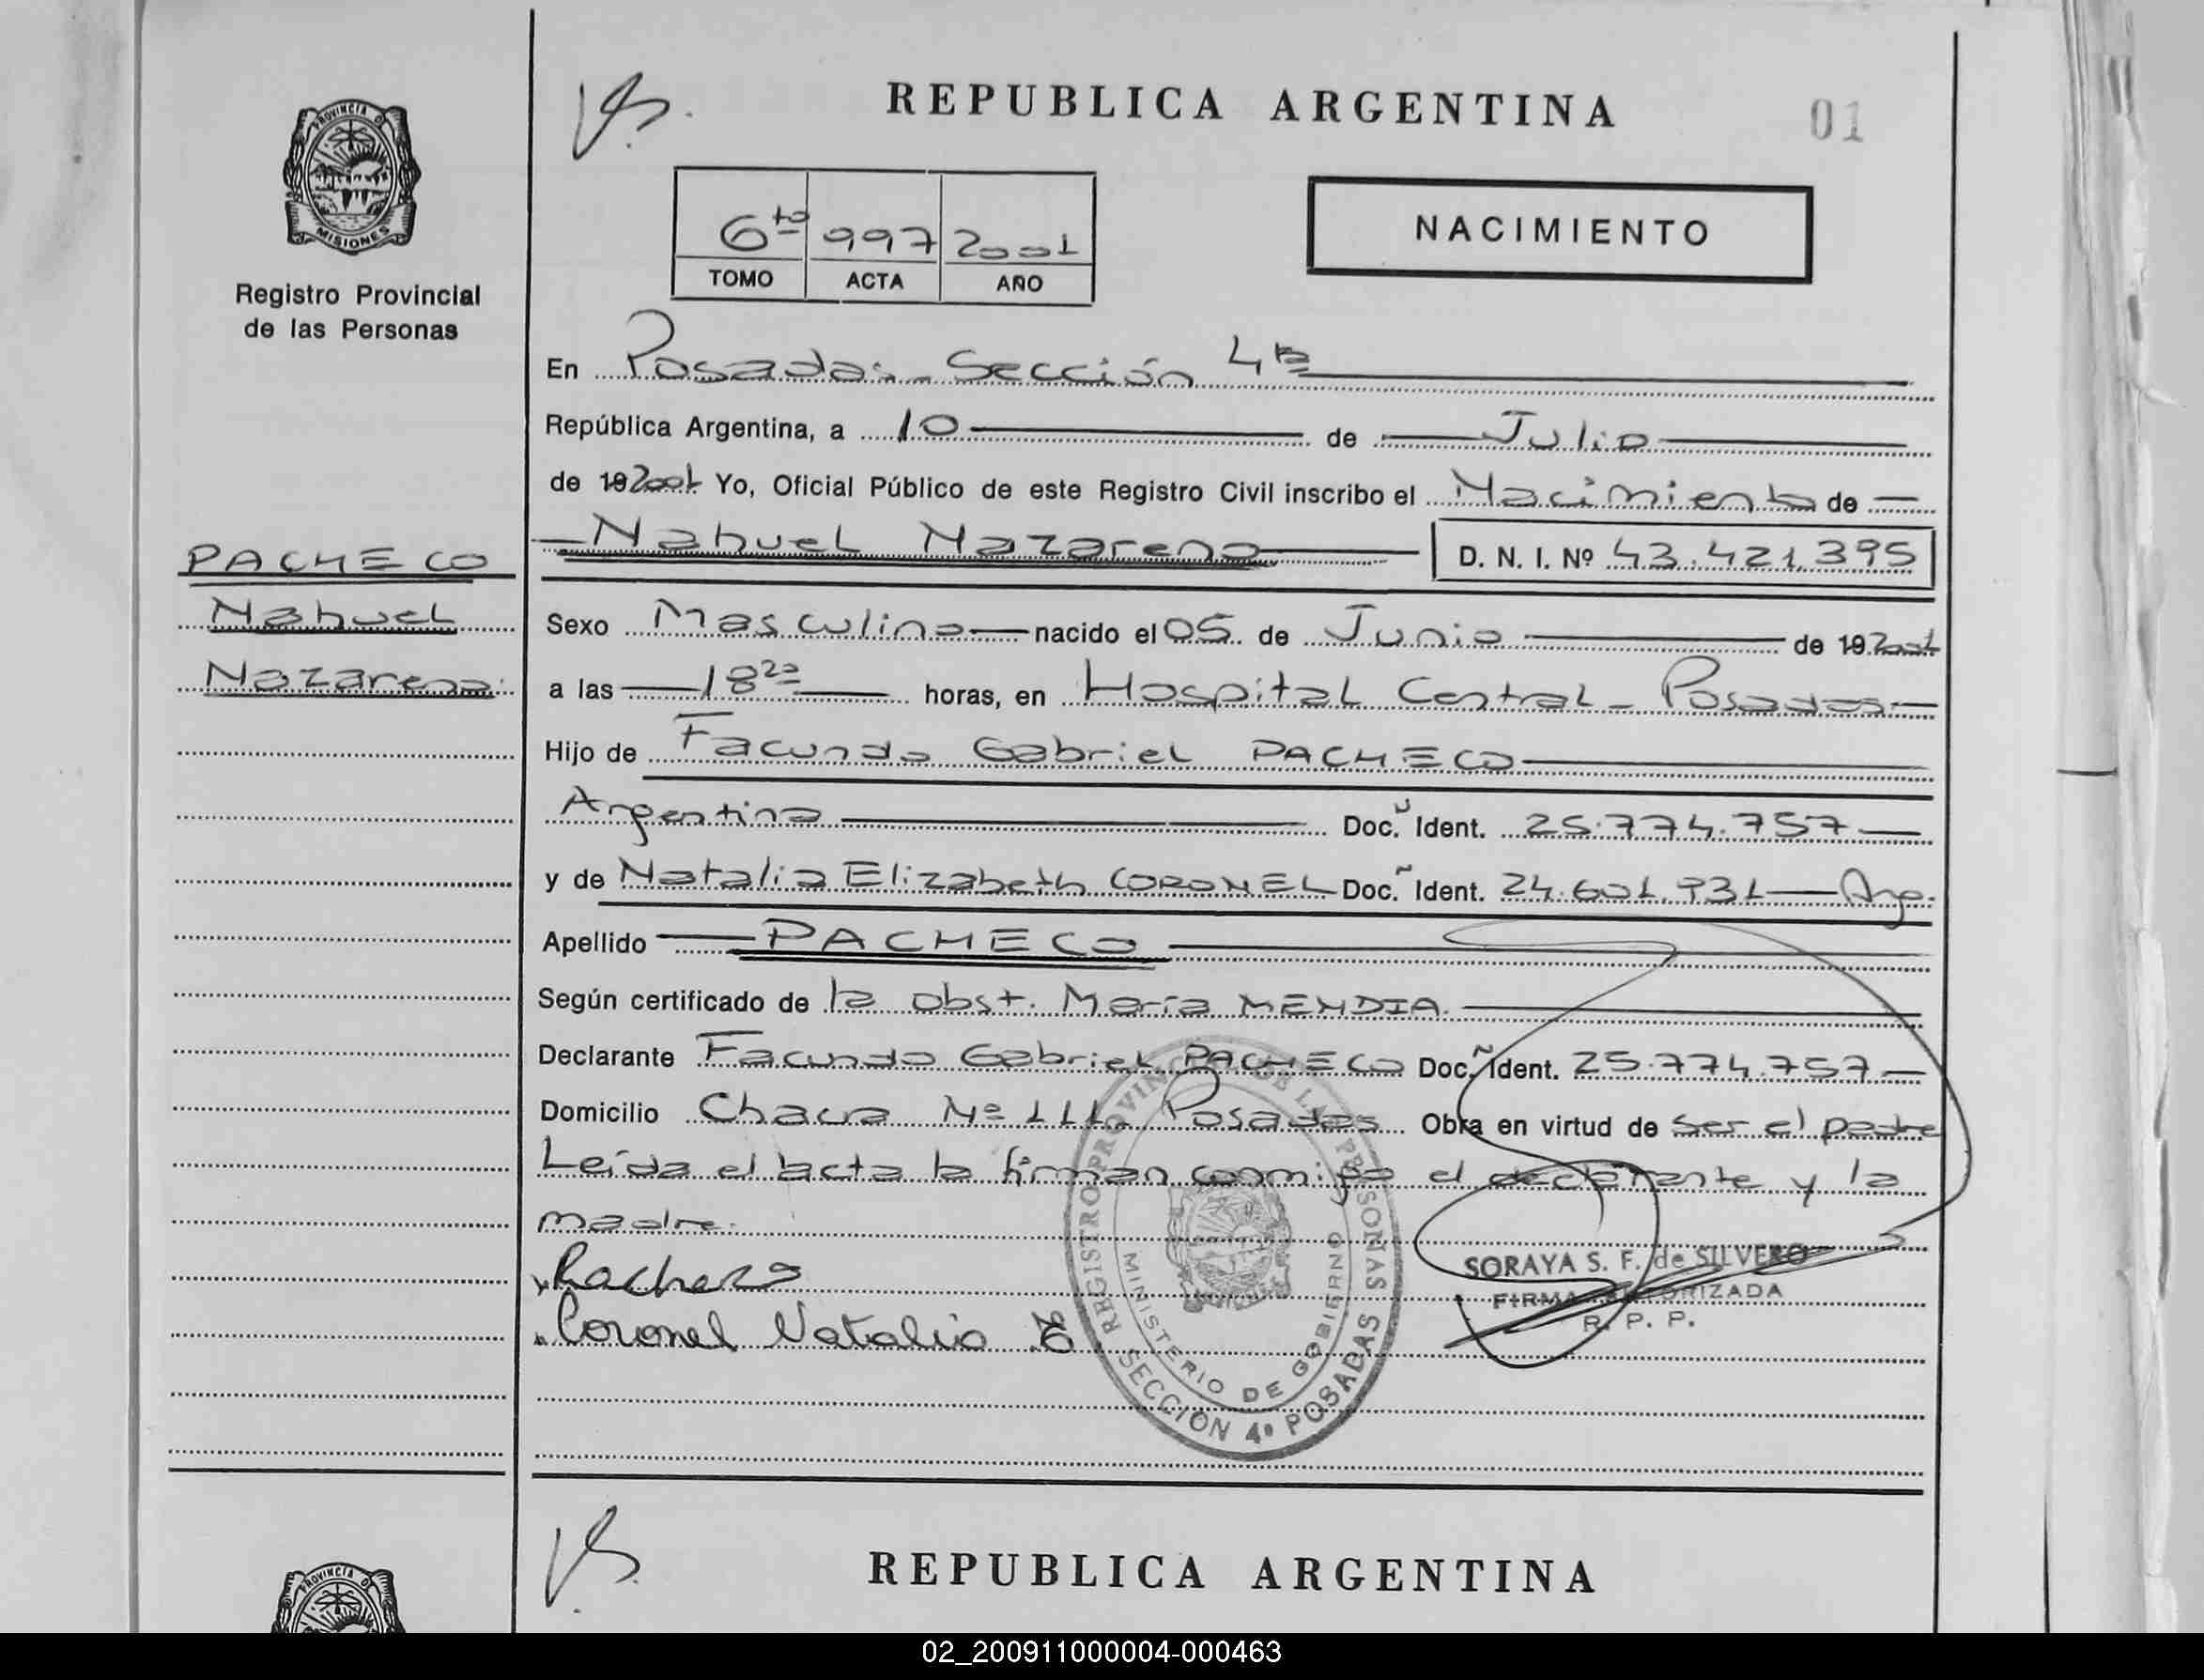 REPUBLICA ARGENTINA
01
PROVINCIA DE
MISIONES
Registro Provincial
de las Personas
6to 997 2001
TOMO ACTA AÑO
NACIMIENTO
En Posadas - Sección 4ta
República Argentina, a 10 de Julio
de 192001 Yo, Oficial Público de este Registro Civil inscribo el Nacimiento de
Nahuel Nazareno D. N. I. Nº 43.421.395
PACHECO
Nahuel
Nazareno
Sexo Masculino nacido el 05 de Junio de 192001
a las 18 20 horas, en Hospital Central - Posadas
Hijo de Facundo Gabriel PACHECO
Argentina Doc. Ident. 25.774.757
y de Natalia Elizabeth CORONEL Doc. Ident. 24.601.931 Arg.
Apellido PACHECO
Según certificado de la obst. María MENDIA
Declarante Facundo Gabriel PACHECO Doc. Ident. 25.774.757
Domicilio Chacra Nº 111. Posadas Obra en virtud de ser el padre
Leída el acta la firman conmigo el declarante y la
madre.
Pacheco
Coronel Natalia E
REGISTRO PROVINCIAL DE LAS PERSONAS
MINISTERIO DE GOBIERNO
SECCION 4ª POSADAS
SORAYA S. F. de SILVERO
FIRMA AUTORIZADA
R. P. P.
REPUBLICA ARGENTINA
PROVINCIA D
02_200911000004-000463